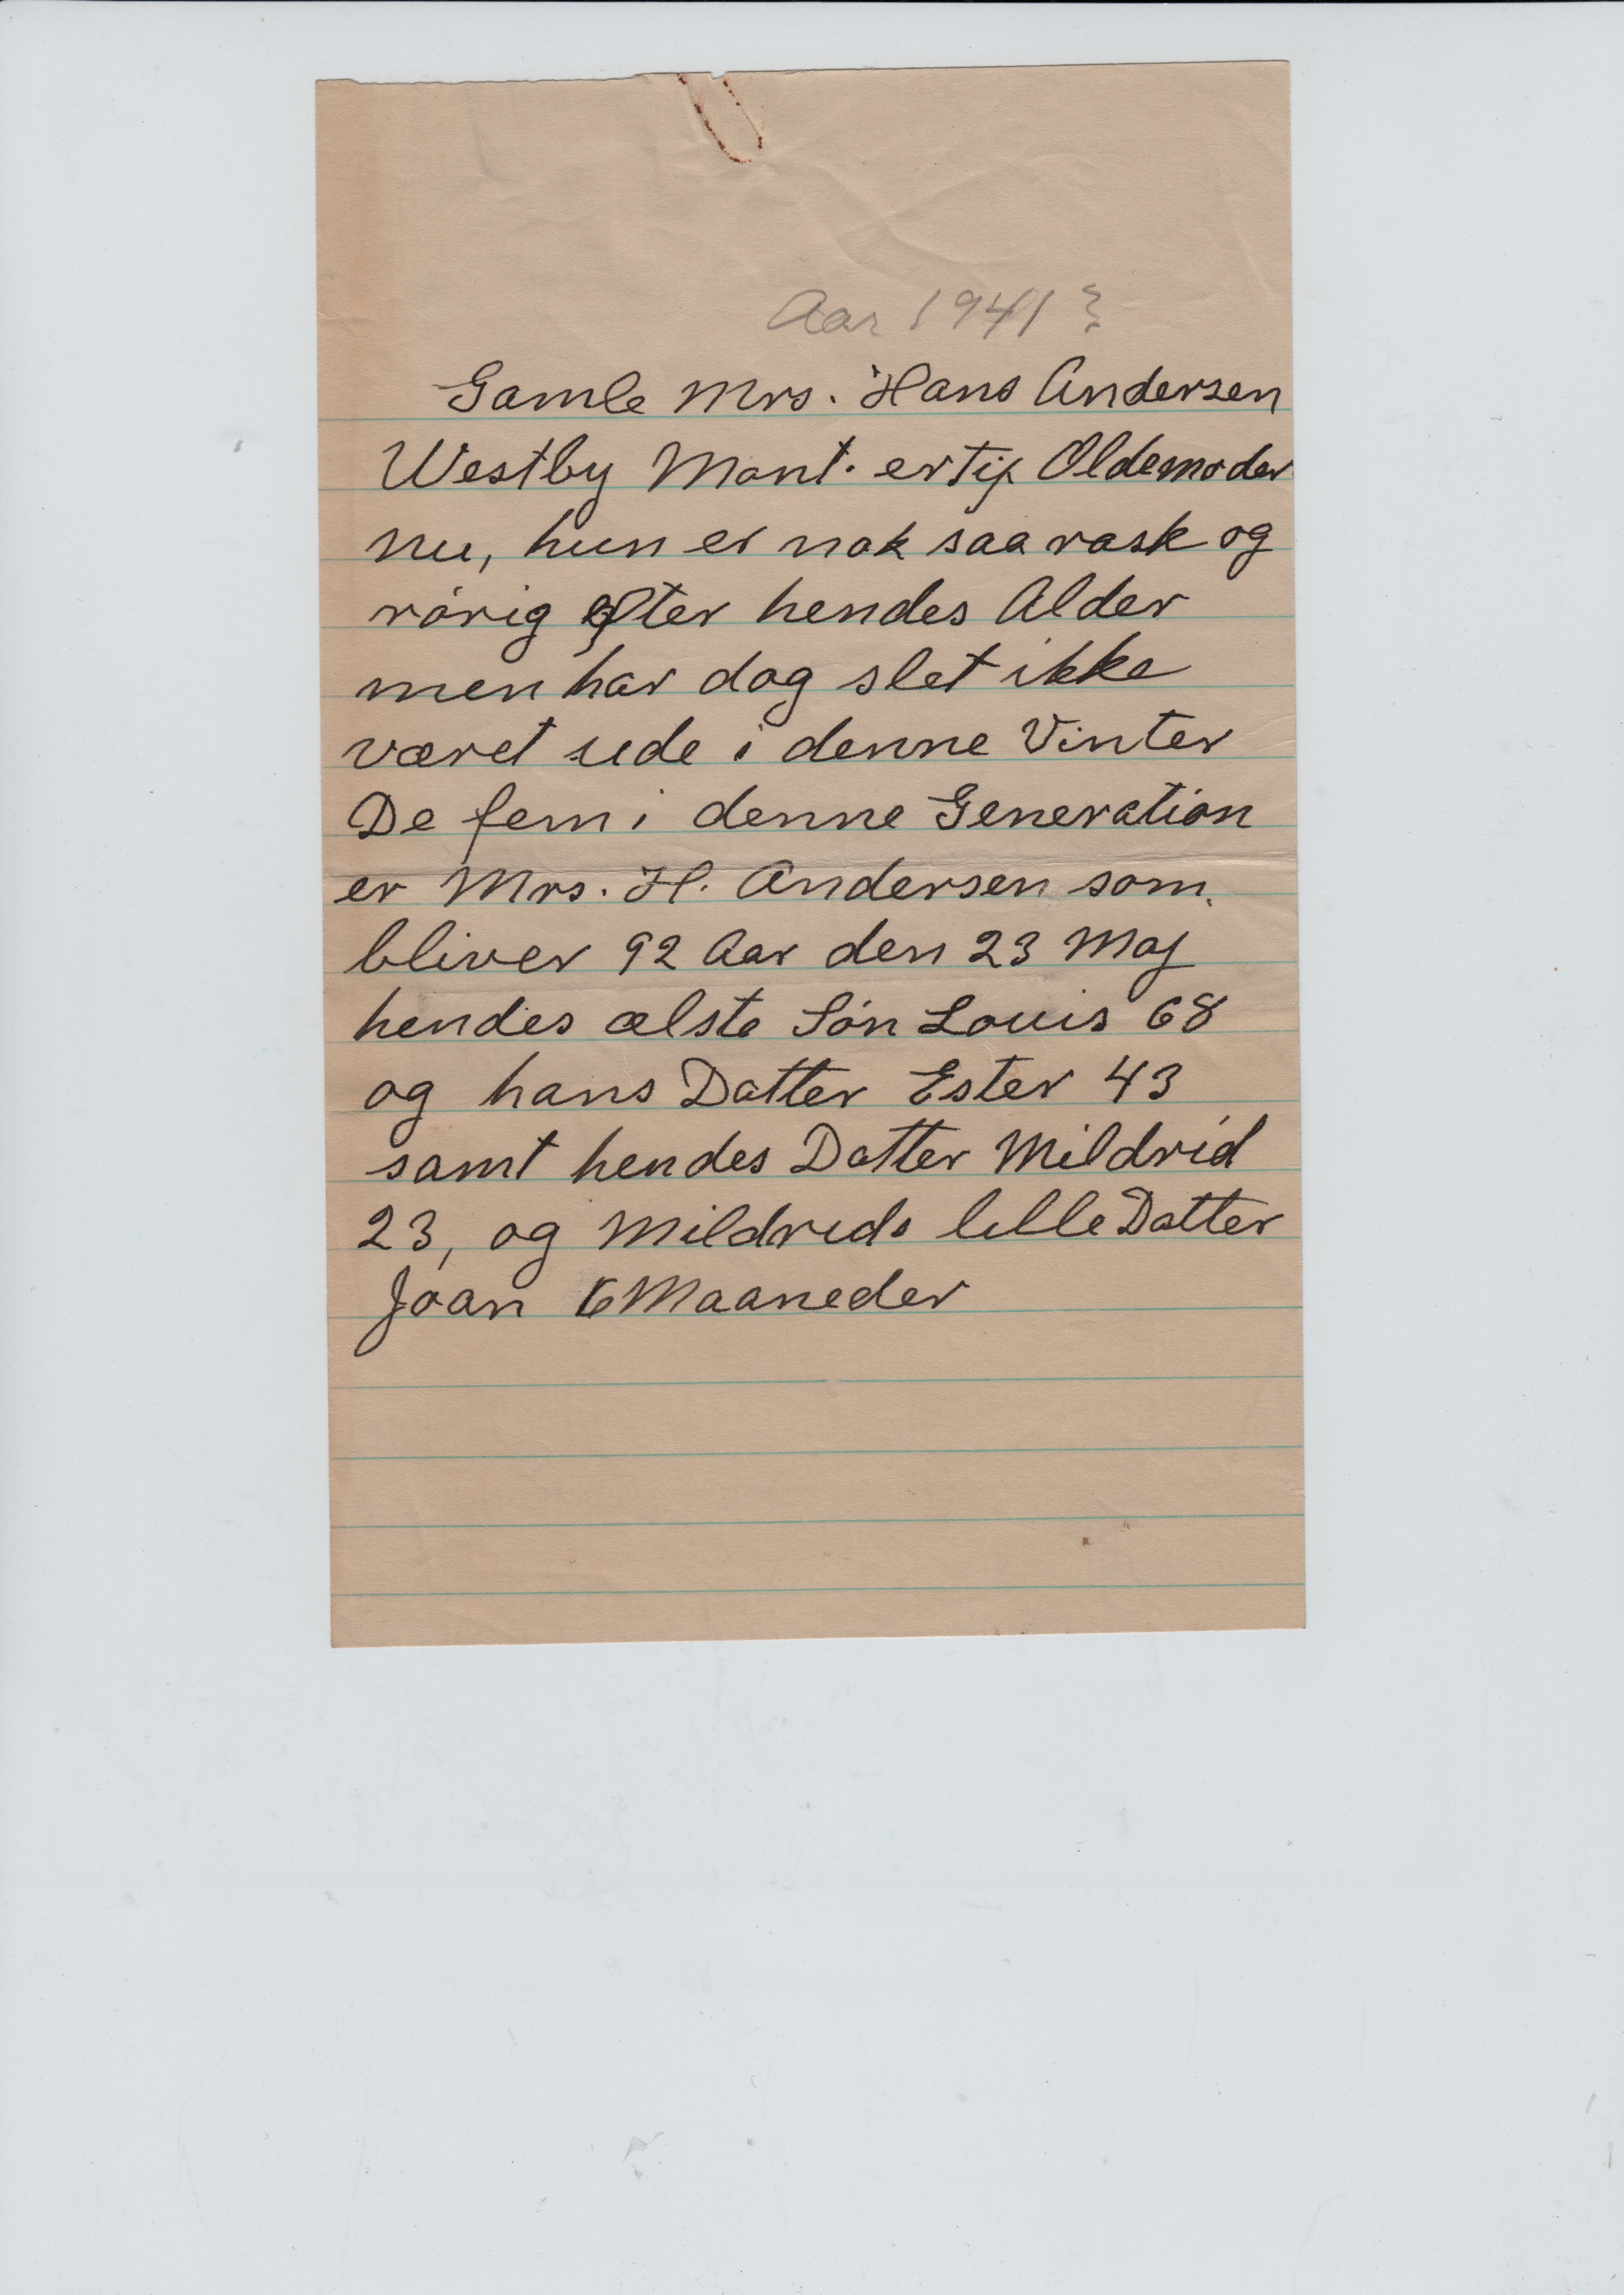 Aar 1941?
Gamle Mrs. Hans Andersen
Westby Mont. er tip Oldemoder
nu, hun er nok saa rask og
rórig efter hendes Alder
men har dog slet ikke
været ude i denne Vinter
De fem i denne Generation
er Mrs. H. Andersen som.
bliver 92 Aar den 23 Maj
hendes ælste Són Louis 68
og hans Datter Ester 43
samt hendes Datter Mildrid
23, og Mildrids lille Datter
Joan 6 Maaneder